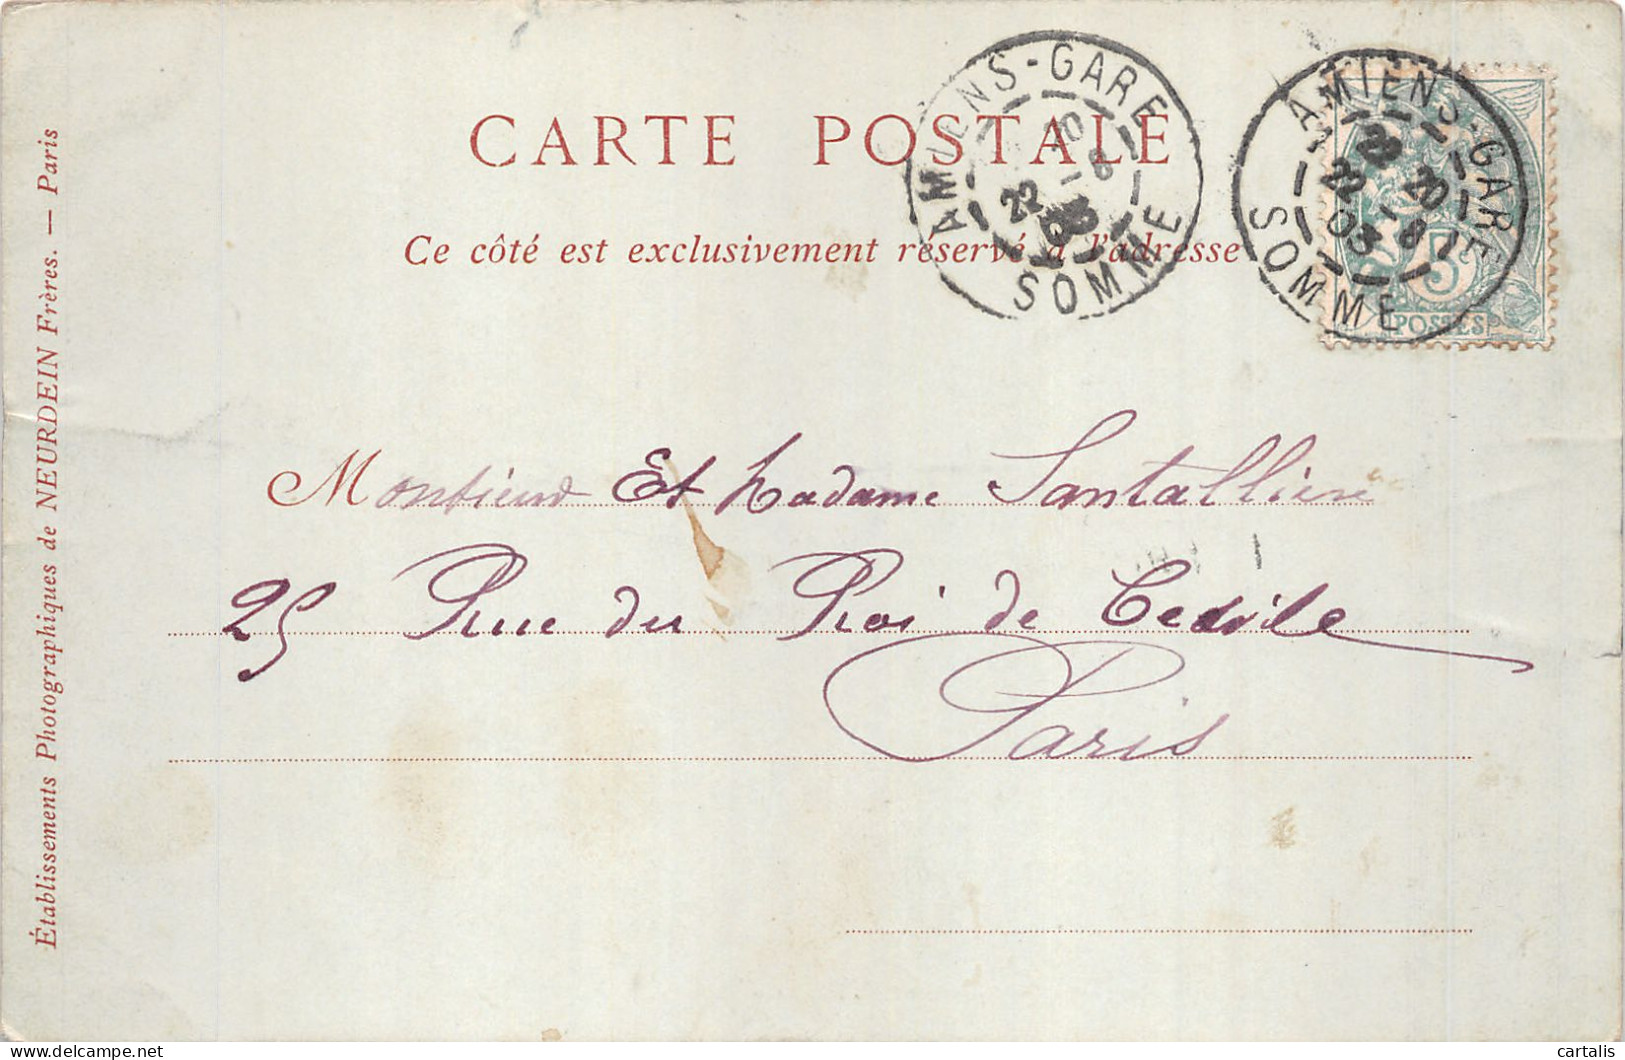 CARTE POSTALE
Ce côté est exclusivement réservé à l'adresse
AMIENS-GARE
20
22 -8
03
SOMME
AMIENS-GARE
20
22 -8
03
SOMME
5
POSTES
Monsieur Et Madame Santallier
25 Rue du Roi de Cecile
Paris
Établissements Photographiques de NEURDEIN Frères. — Paris
delcampe.net
cartalis